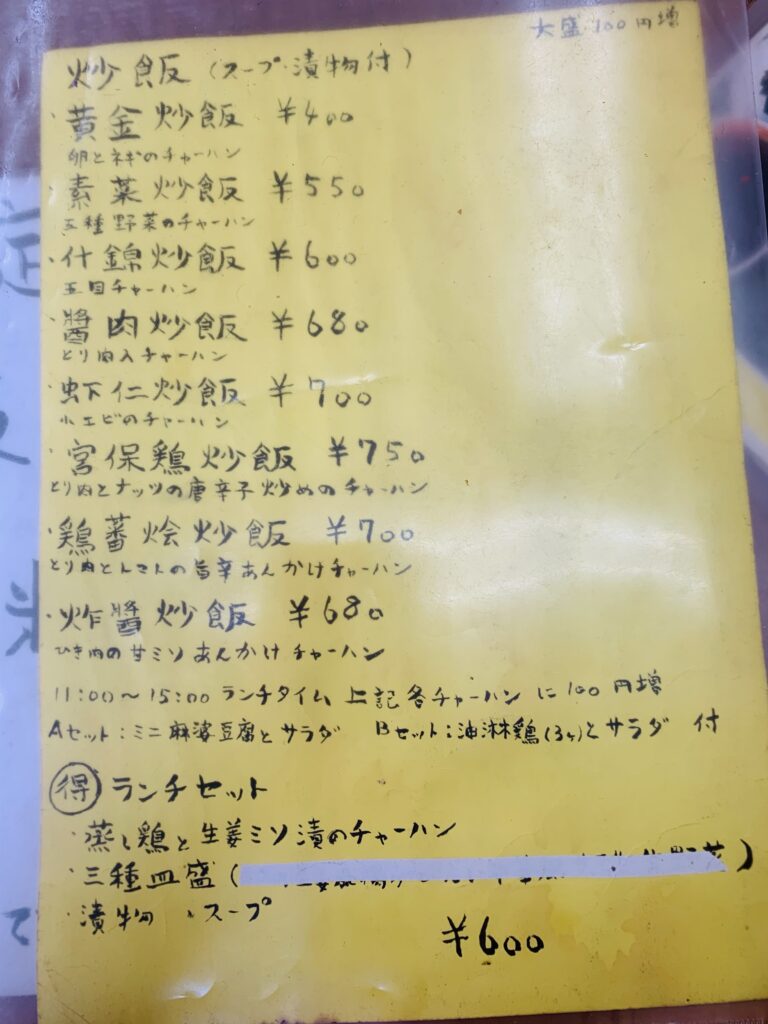 大盛 100円増
炒飯 (スープ・漬物付)
・黄金炒飯 ¥400
卵とネギのチャーハン
・素菜炒飯 ¥550
五種野菜のチャーハン
・什錦炒飯 ¥600
五目チャーハン
・醬肉炒飯 ¥680
とり肉入チャーハン
・虾仁炒飯 ¥700
小エビのチャーハン
・宮保鶏炒飯 ¥750
とり肉とナッツの唐辛子炒めのチャーハン
・鶏蕃烩炒飯 ¥700
とり肉とトマトの旨辛あんかけチャーハン
・炸醬炒飯 ¥680
ひき肉の甘ミソあんかけチャーハン
11:00〜15:00 ランチタイム 上記各チャーハンに100円増
Aセット:ミニ麻婆豆腐とサラダ Bセット:油淋鶏(3ヶ)とサラダ 付
得 ランチセット
・蒸し鶏と生姜ミソ漬のチャーハン
・三種皿盛( )
・漬物 ・スープ
¥600